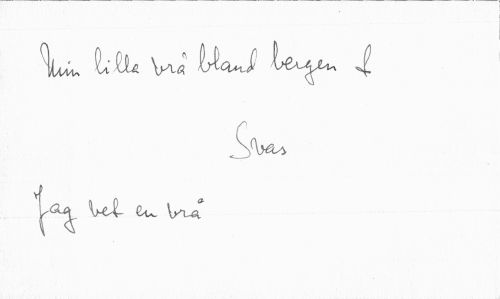 Min lilla vrå bland bergen f
Svas
Jag vet en vrå